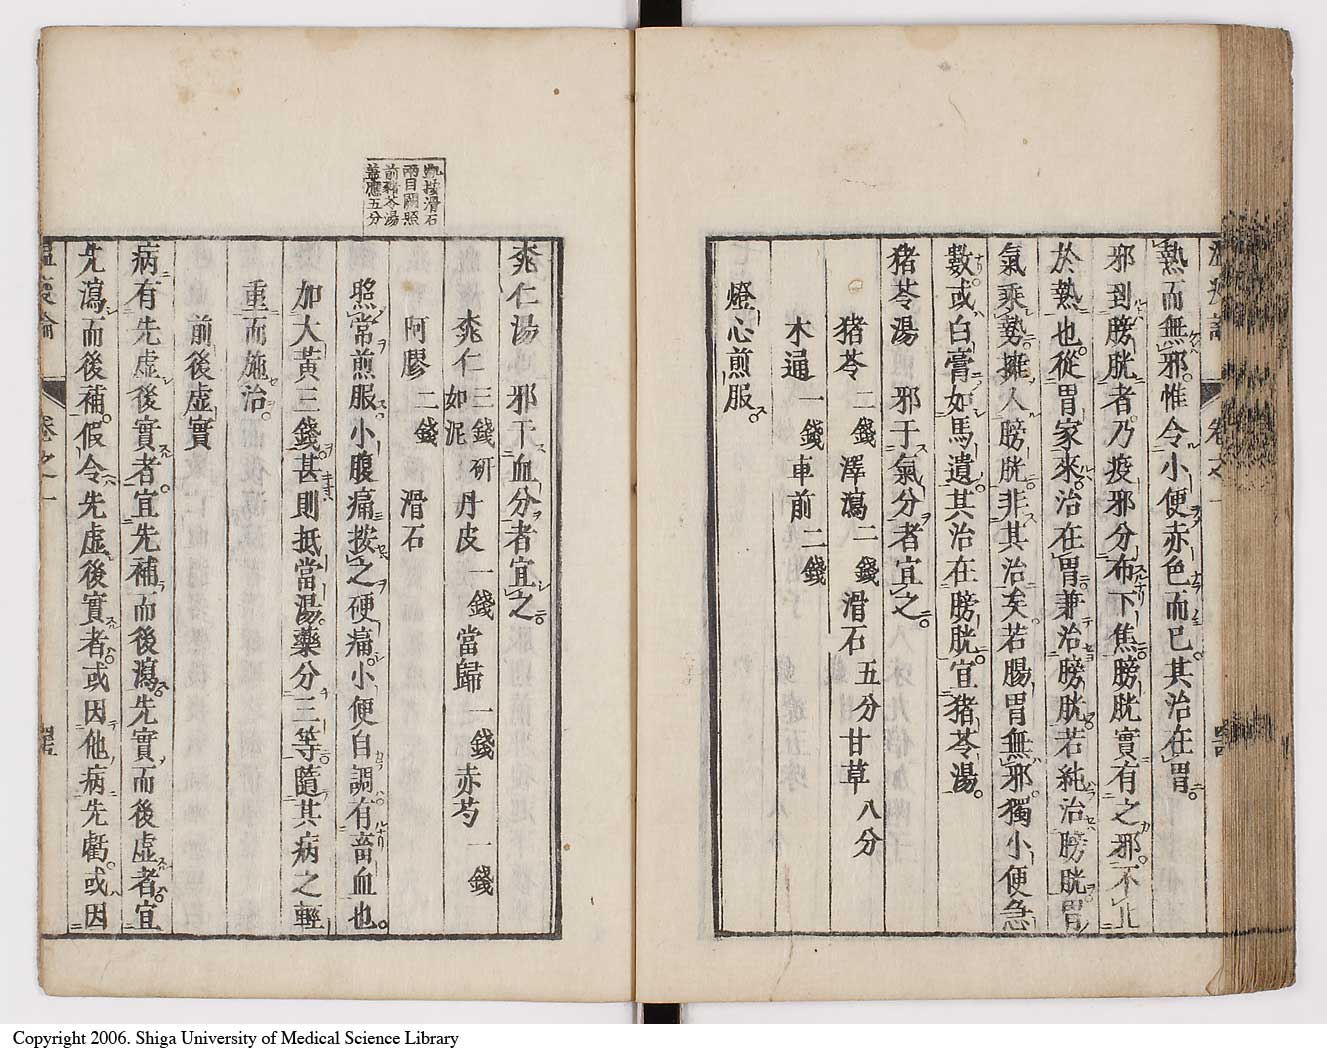 熱而無邪惟令小便赤色而已其治在胃
邪到膀胱者乃疫邪分布下焦膀胱實有之邪不止
於熱也從胃家來治在胃兼治膀胱若純治膀胱胃
氣乘勢擁入膀胱非其治矣若腸胃無邪獨小便急
數或白膏如馬遺其治在膀胱宜猪苓湯
猪苓湯　邪干氣分者宜之
猪苓二錢澤瀉二錢滑石五分甘草八分
木通一錢車前二錢
燈心煎服
桃仁湯　邪干血分者宜之
桃仁三錢研如泥丹皮一錢當歸一錢赤芍一錢
阿膠二錢　滑石
照常煎服小腹痛按之硬痛小便自調有畜血也
加大黃三錢甚則抵當湯藥分三等隨其病之輕
重而施治
前後虛實
病有先虛後實者宜先補而後瀉先實而後虛者宜
先瀉而後補假令先虛後實者或因他病先虧或因
按滑石
兩目闕照
前豬苓湯
蓋應五分
溫疫論　卷之一
Copyright 2006. Shiga University of Medical Science Library